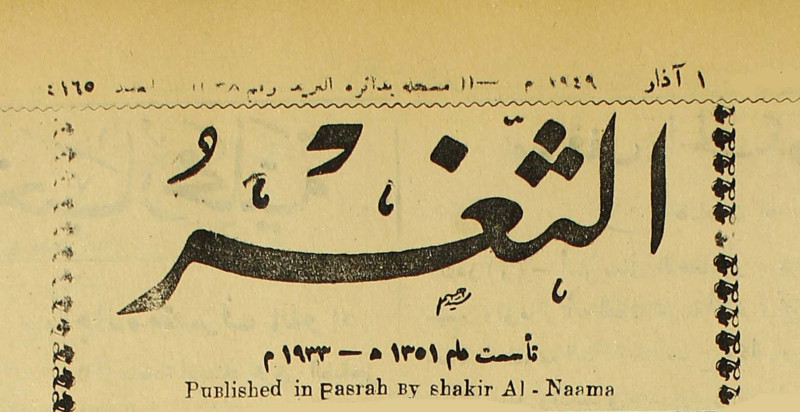 ١ آذار ١٩٤٩ م — ١١ مسجلة بدائرة البريد العدد ٤١٦٥
الثغر
تأسست عام ١٣٥١ ه — ١٩٣٣ م
Published in Basrah By shakir Al - Naama